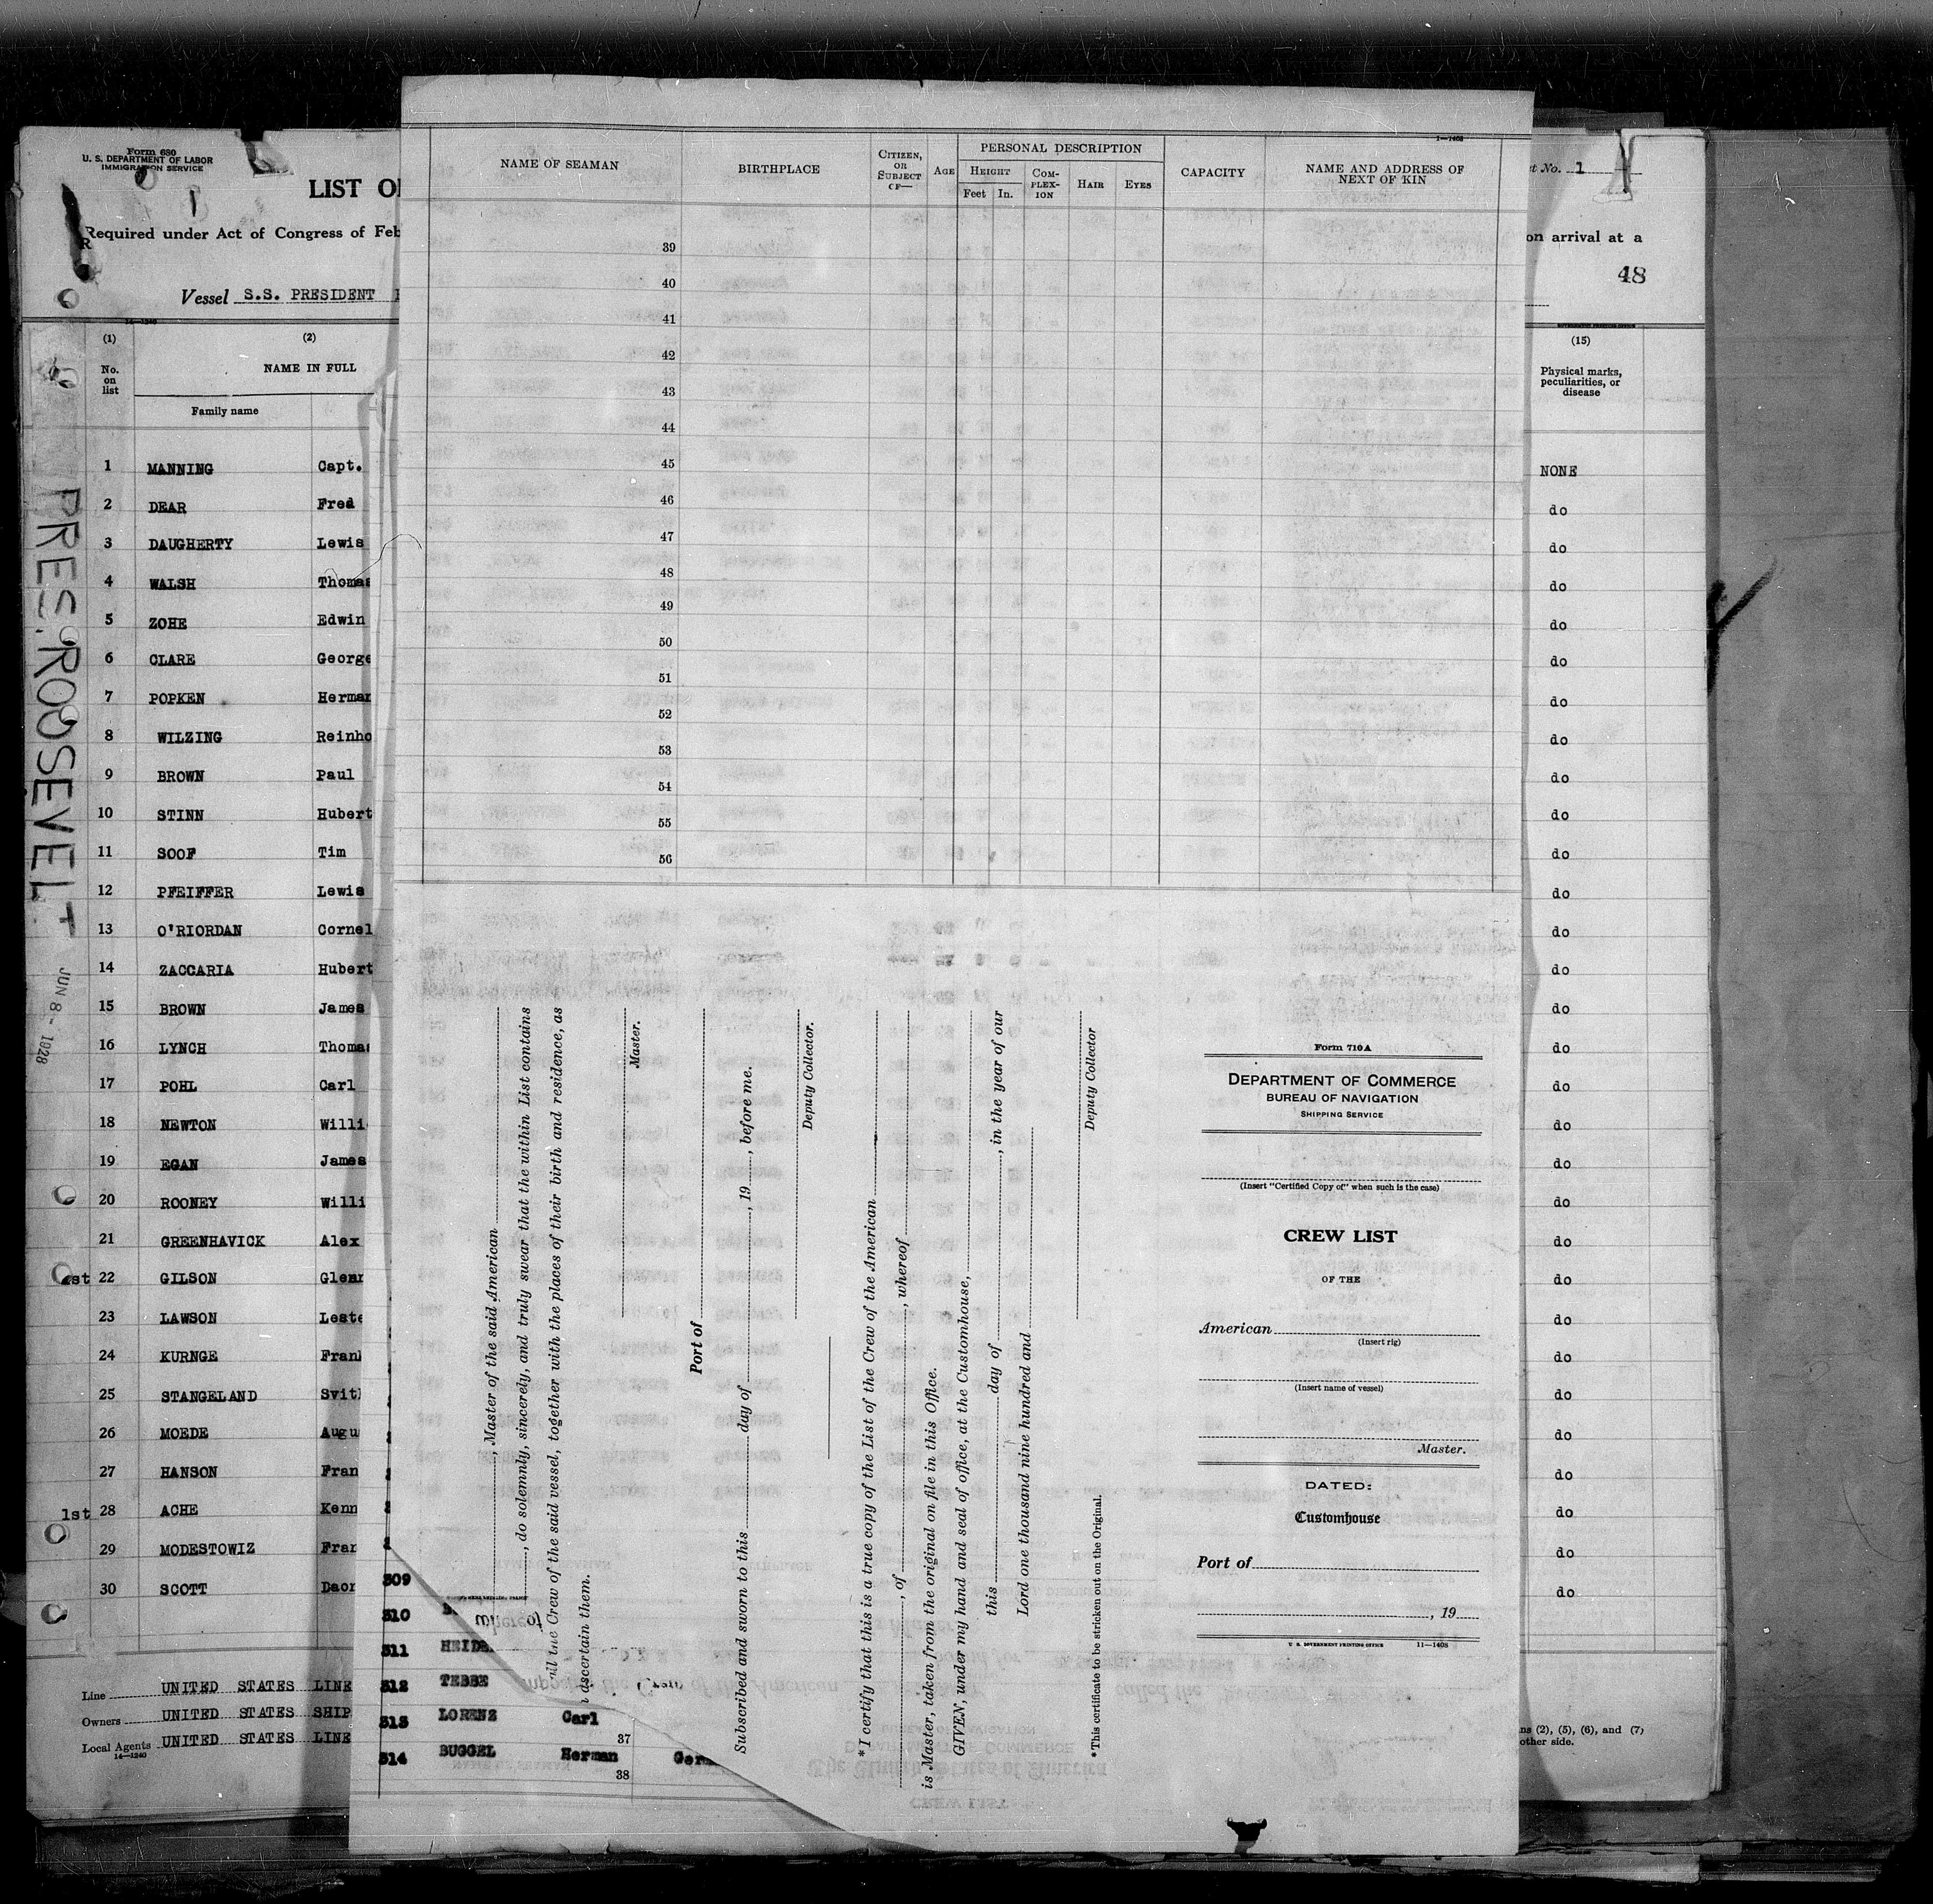 Form 680
U. S. DEPARTMENT OF LABOR
IMMIGRATION SERVICE
LIST O
Required under Act of Congress of Feb
Vessel S.S. PRESIDENT
14—1240
(1)
No. on list
(2)
NAME IN FULL
Family name
1 MANNING Capt.
2 DEAR Fred
3 DAUGHERTY Lewis
4 WALSH Thomas
5 ZOHE Edwin
6 CLARE George
7 POPKEN Herman
8 WILZING Reinho
9 BROWN Paul
10 STINN Hubert
11 SOOF Tim
12 PFEIFFER Lewis
13 O'RIORDAN Cornel
14 ZACCARIA Hubert
15 BROWN James
16 LYNCH Thomas
17 POHL Carl
18 NEWTON Willi
19 EGAN James
20 ROONEY Willi
21 GREENHAVICK Alex
22 GILSON Glenn
23 LAWSON Leste
24 KURNGE Fran
25 STANGELAND Svit
26 MOEDE Augu
27 HANSON Fran
1st 28 ACHE Kenn
29 MODESTOWIZ Fran
30 SCOTT Daor
Line UNITED STATES LINE
Owners UNITED STATES SHIP
Local Agents UNITED STATES LINE
14—1240
PRES. ROOSEVELT
JUN 8 - 1928
1—1408
NAME OF SEAMAN
BIRTHPLACE
CITIZEN, OR SUBJECT OF—
AGE
PERSONAL DESCRIPTION
HEIGHT
Feet
In.
COM-PLEX-ION
HAIR
EYES
CAPACITY
NAME AND ADDRESS OF NEXT OF KIN
39
40
41
42
43
44
45
46
47
48
49
50
51
52
53
54
55
56
, Master of the said American
, do solemnly, sincerely, and truly swear that the within List contains
all the Crew of the said vessel, together with the places of their birth and residence, as
ascertain them.
Master.
Port of
Subscribed and sworn to this day of , 19 , before me.
Deputy Collector.
*I certify that this is a true copy of the List of the Crew of the American
, of , whereof
is Master, taken from the original on file in this Office.
GIVEN, under my hand and seal of office, at the Customhouse,
this day of , in the year of our
Lord one thousand nine hundred and
Deputy Collector
*This certificate to be stricken out on the Original.
Form 710A
DEPARTMENT OF COMMERCE
BUREAU OF NAVIGATION
SHIPPING SERVICE
(Insert "Certified Copy of" when such is the case)
CREW LIST
OF THE
American
(Insert rig)
(Insert name of vessel)
Master.
DATED:
Customhouse
Port of
, 19
U. S. GOVERNMENT PRINTING OFFICE 11—1408
309
310
whereof
311 HEID
312 TEBBE
313 LORENZ Carl
37
314 BUGGEL Herman Ger
38
t No. 1
on arrival at a
48
(15)
Physical marks, peculiarities, or disease
NONE
do
do
do
do
do
do
do
do
do
do
do
do
do
do
do
do
do
do
do
do
do
do
do
do
do
do
do
do
do
ns (2), (5), (6), and (7)
other side.